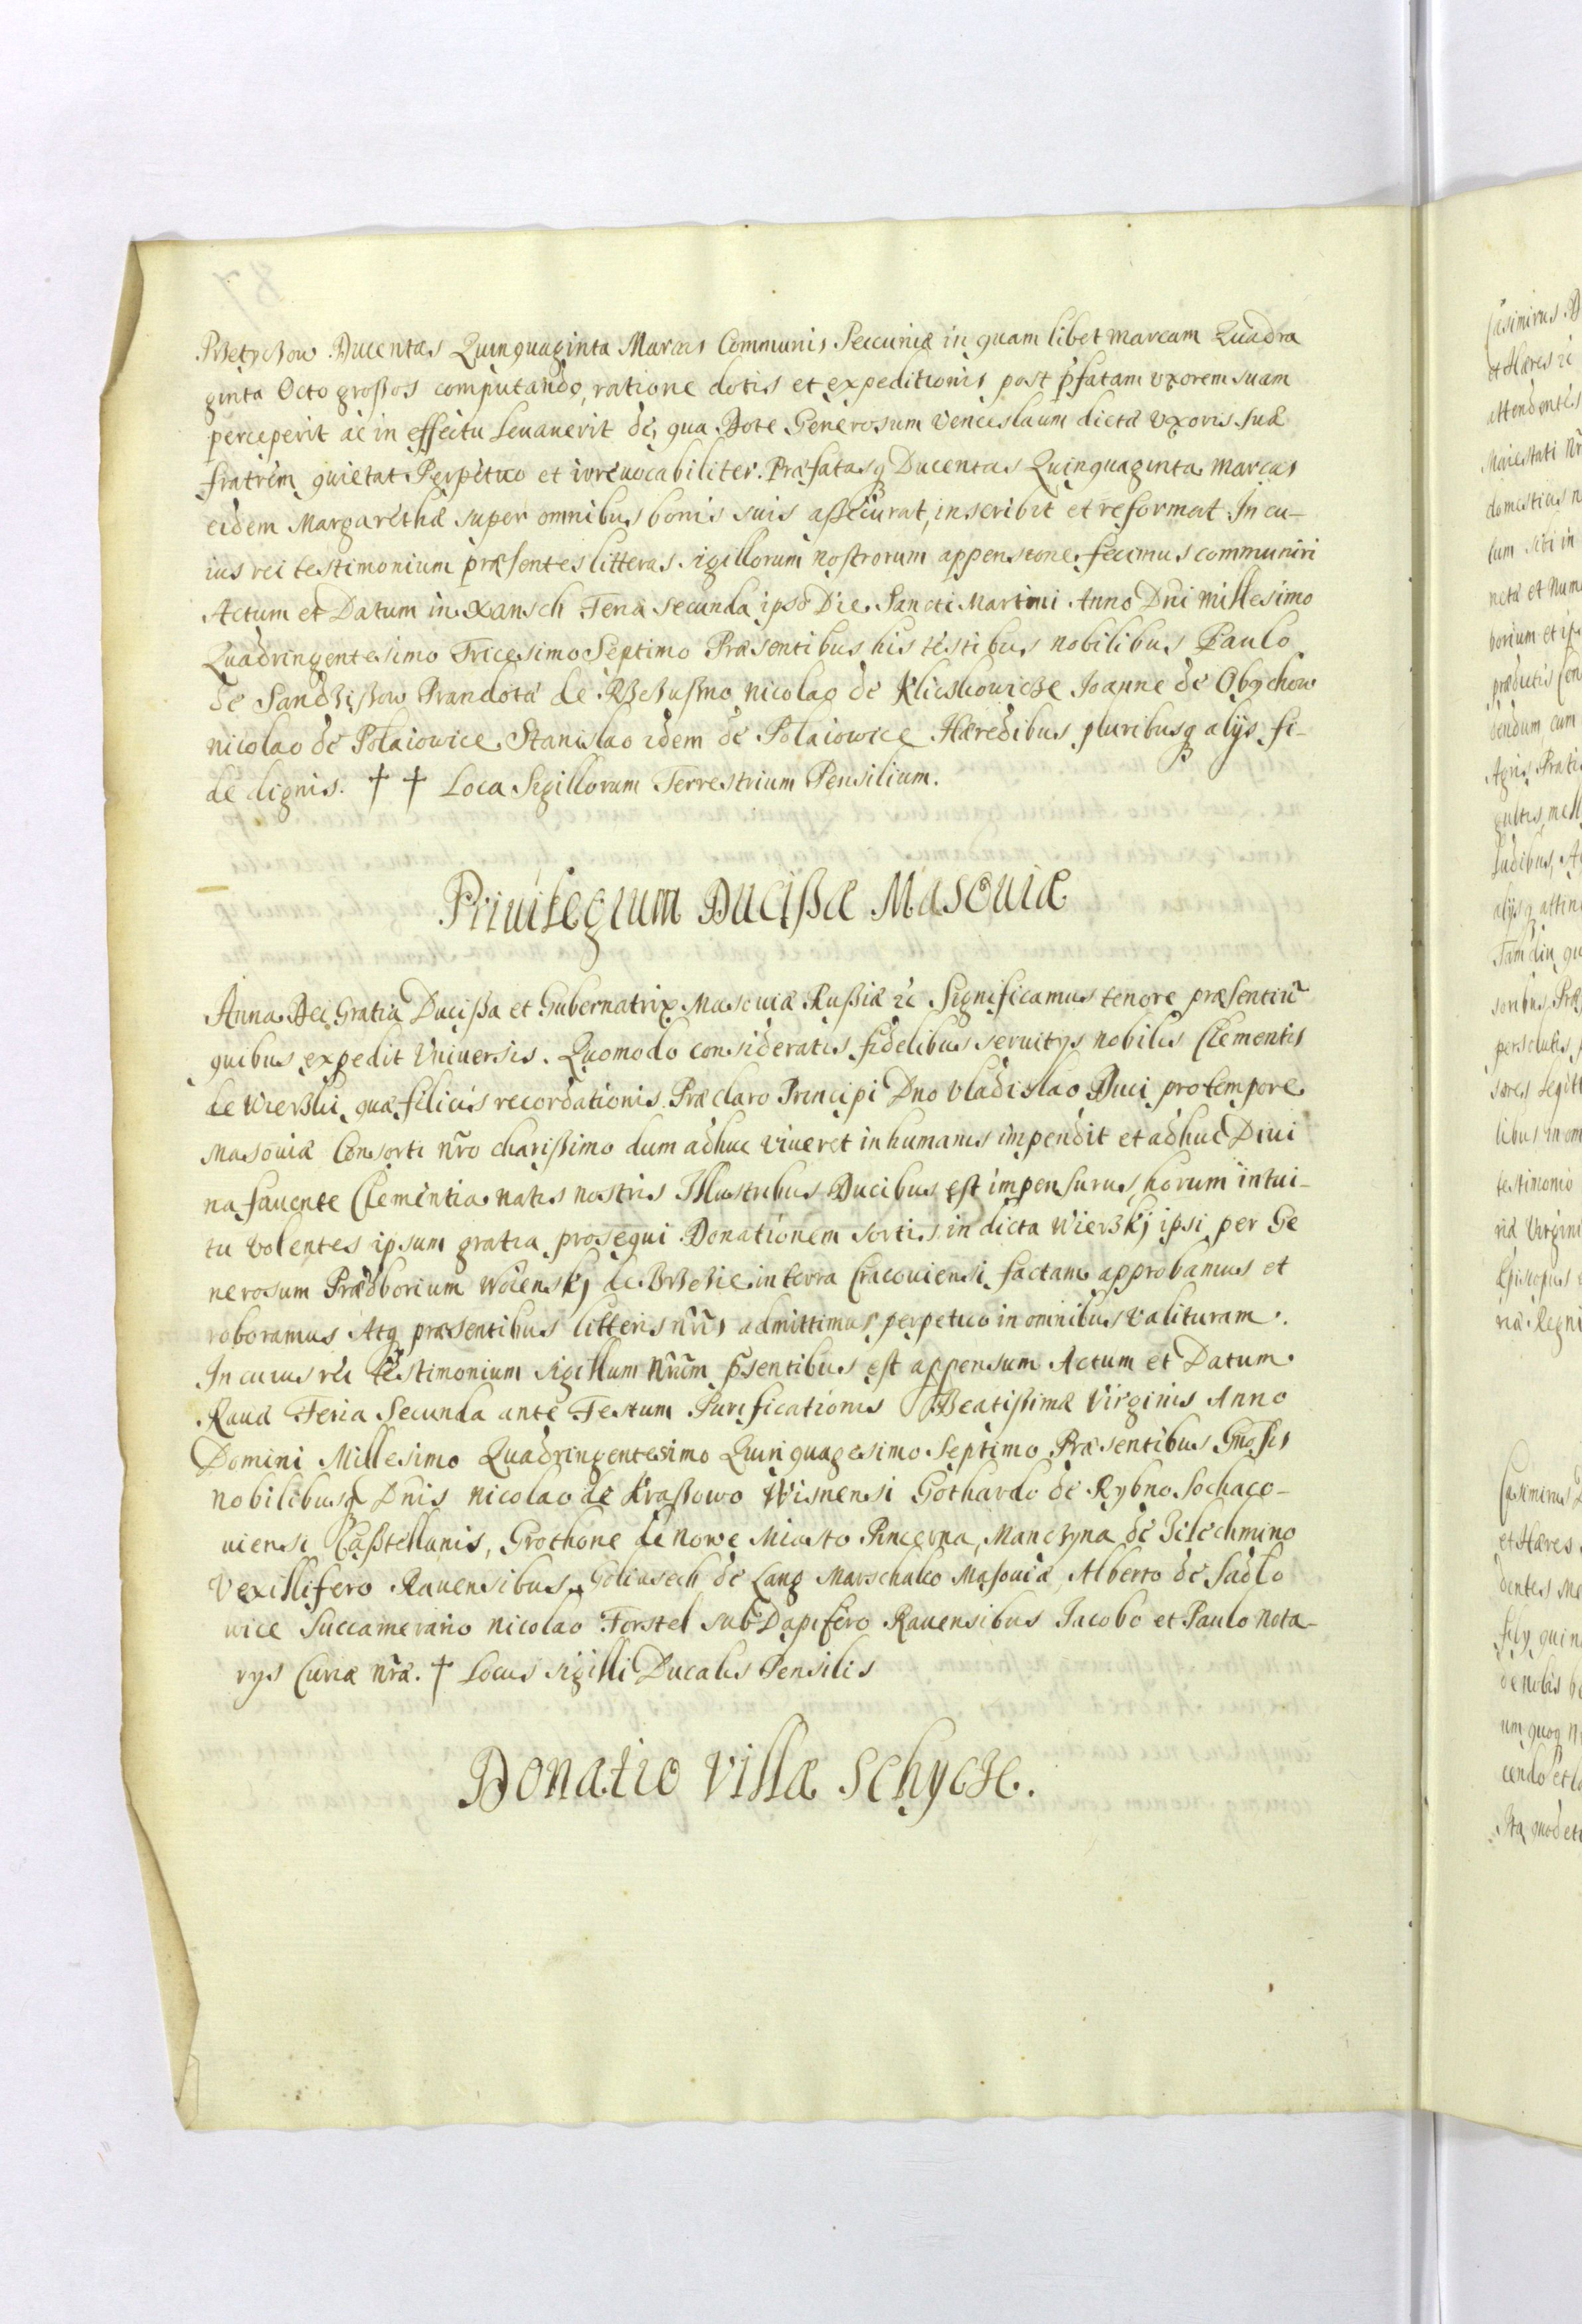 Przetyczow Ducentas Quinquaginta Marcas Communis Peccuniæ in quam libet marcam Quadra
ginta Octo großos computando, ratione dotis et expeditionis post p̄fatam vxorem suam
perceperit ac in effectu leuauerit de, qua Dote Generosum Venceslaum dictæ vxoris suæ
fratrem quietat Perpetuo et irreuocabiliter. Præfatasq Ducentas Quinquaginta Marcas
eidem Margarethæ super omnibus bonis suis aßecurat, inscribit et reformat In cu-
ius rei testimonium præsentes litteras sigillorum nostrorum appensione fecimus communiri
Actum et Datum in Xansch Feria secunda ipso Die Sancti Martini Anno Dni Millesimo
Quadringentesimo Tricesimo Septimo Præsentibus his testibus nobilibus Paulo
de Sandzißow Prandota de nicolao de Klieskowicze Joanne de Obychow
nicolao de Polaiowice Stanislao idem de Polaiowice Hæredibus pluribusq alijs fi-
de dignis. † † Loca Sigillorum Terrestrium Pensilium.
Priuilegium Ducißæ Masouiæ
Anna Dei Gratia Ducißa et Gubernatrix Masouiæ Rußiæ &c Significamus tenore præsentiū
quibus expedit Vniuersis. Quomodo consideratis fidelibus seruitys nobilis Clementis
de Wierzki quæ felicis recordationis Præclaro Principi Dno Vladislao Duci pro tempore
Masouiæ Consorti nr̄o charißimo dum adhuc viueret in humanis impendit et adhuc Diui
na fauente Clementia natis nostris Illustribus Ducibus est impensurus, horum intui-
tu volentes ipsum gratia prosequi Donationem sortis in dicta Wierzkj ipsi per Ge
nerosum Prædborium Woienskj de in terra Cracouiensi factam approbamus et
roboramus Atq præsentibus litteris nr̄is admittimus perpetuo in omnibus valituram.
In cuius rei testimonium sigillum nr̄um p̄sentibus est appensum Actum et Datum
Rauæ Feria Secunda ante Festum Purificationis Beatißimæ Virginis Anno
Domini Millesimo Quadringentesimo Quinquagesimo Septimo Præsentibus Gnosis
nobilibusq Dnis nicolao de Kraßowo Wisnensi Gothardo de Rybno Sochaco-
uiensi Caßtellanis, Grothone de nowe Miasto Pincerna, Manczyna de Zilechmino
Vexillifero Rauensibus, Goliasch de Lang Marschalco Masouiæ Alberto de Sadlo
wice Succamerario nicolao Forstel subDapifero Rauensibus Jacobo et Paulo nota-
rys Curiæ nr̄æ. † Locus sigilli Ducalis Pensilis
Donatio Villæ Schycze.